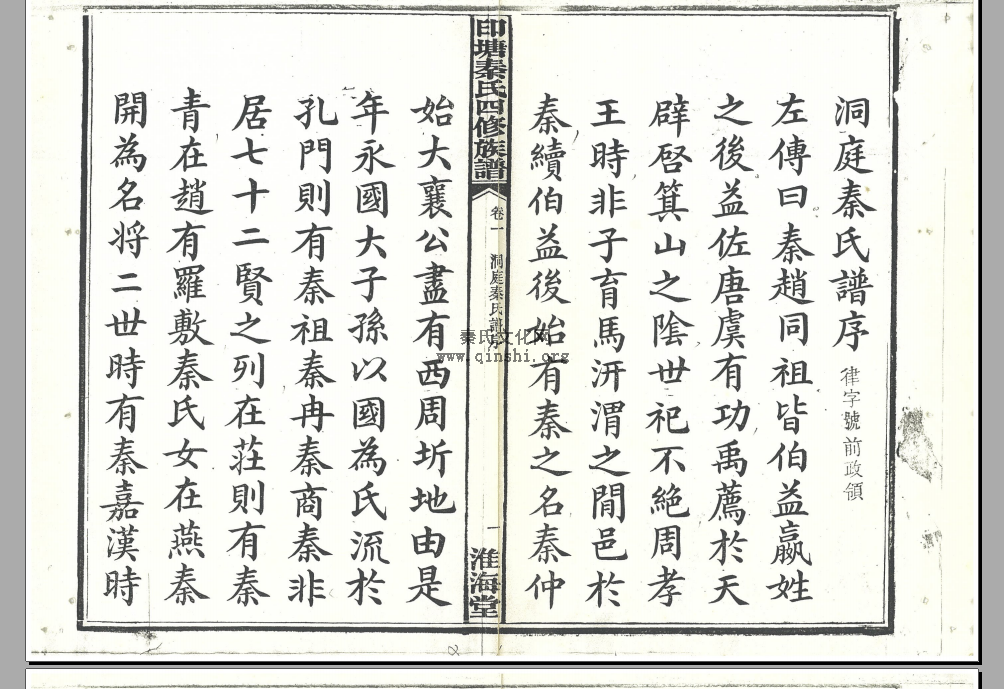 洞庭秦氏譜序 律字號前政領
左傳曰秦趙同祖皆伯益嬴姓
之後益佐唐虞有功禹薦於天
辟啓箕山之陰世祀不絕周孝
王時非子育馬汧渭之間邑於
秦續伯益後始有秦之名秦仲
印塘秦氏四修族譜 卷一 洞庭秦氏譜序 一 淮海堂
始大襄公盡有西周圻地由是
年永國大子孫以國為氏流於
孔門則有秦祖秦冉秦商秦非
居七十二賢之列在莊則有秦
青在趙有羅敷秦氏女在燕秦
開為名將二世時有秦嘉漢時
秦氏文化网
www.qinshi.org